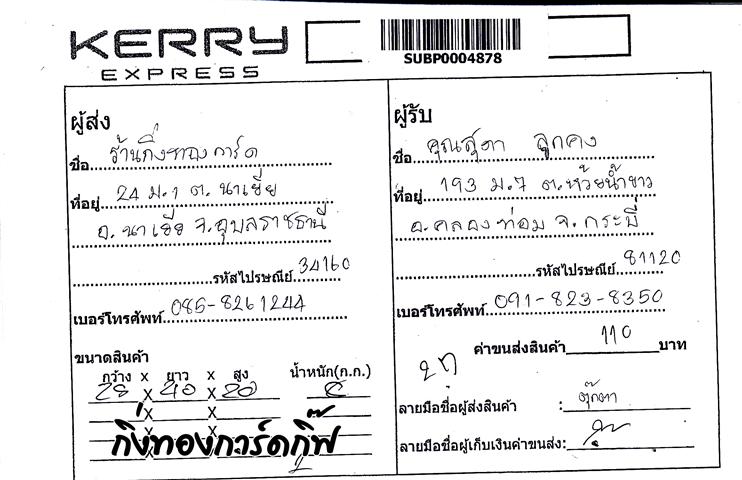 KERRY
EXPRESS
SUBP0004878
ผู้ส่ง
ชื่อ ร้านกิ่งทองการ์ด
ที่อยู่ 24 ม.1 ต. นาเยีย
อ. นาเยีย จ.อุบลราชธานี
รหัสไปรษณีย์ 34160
เบอร์โทรศัพท์ 085-8261244
ขนาดสินค้า
กว้าง x ยาว x สูง น้ำหนัก(ก.ก.)
28 x 40 x 20
x x
กิ่งทองการ์ดกิ๊ฟ
ผู้รับ
ชื่อ คุณสุดา ลูกคง
ที่อยู่ 193 ม.7 ต.ห้วยน้ำขาว
อ.คลองท่อม จ.กระบี่
รหัสไปรษณีย์ 81120
เบอร์โทรศัพท์ 091-823-8350
ค่าขนส่งสินค้า 110 บาท
ลายมือชื่อผู้ส่งสินค้า : ตุ๊กตา
ลายมือชื่อผู้เก็บเงินค่าขนส่ง: